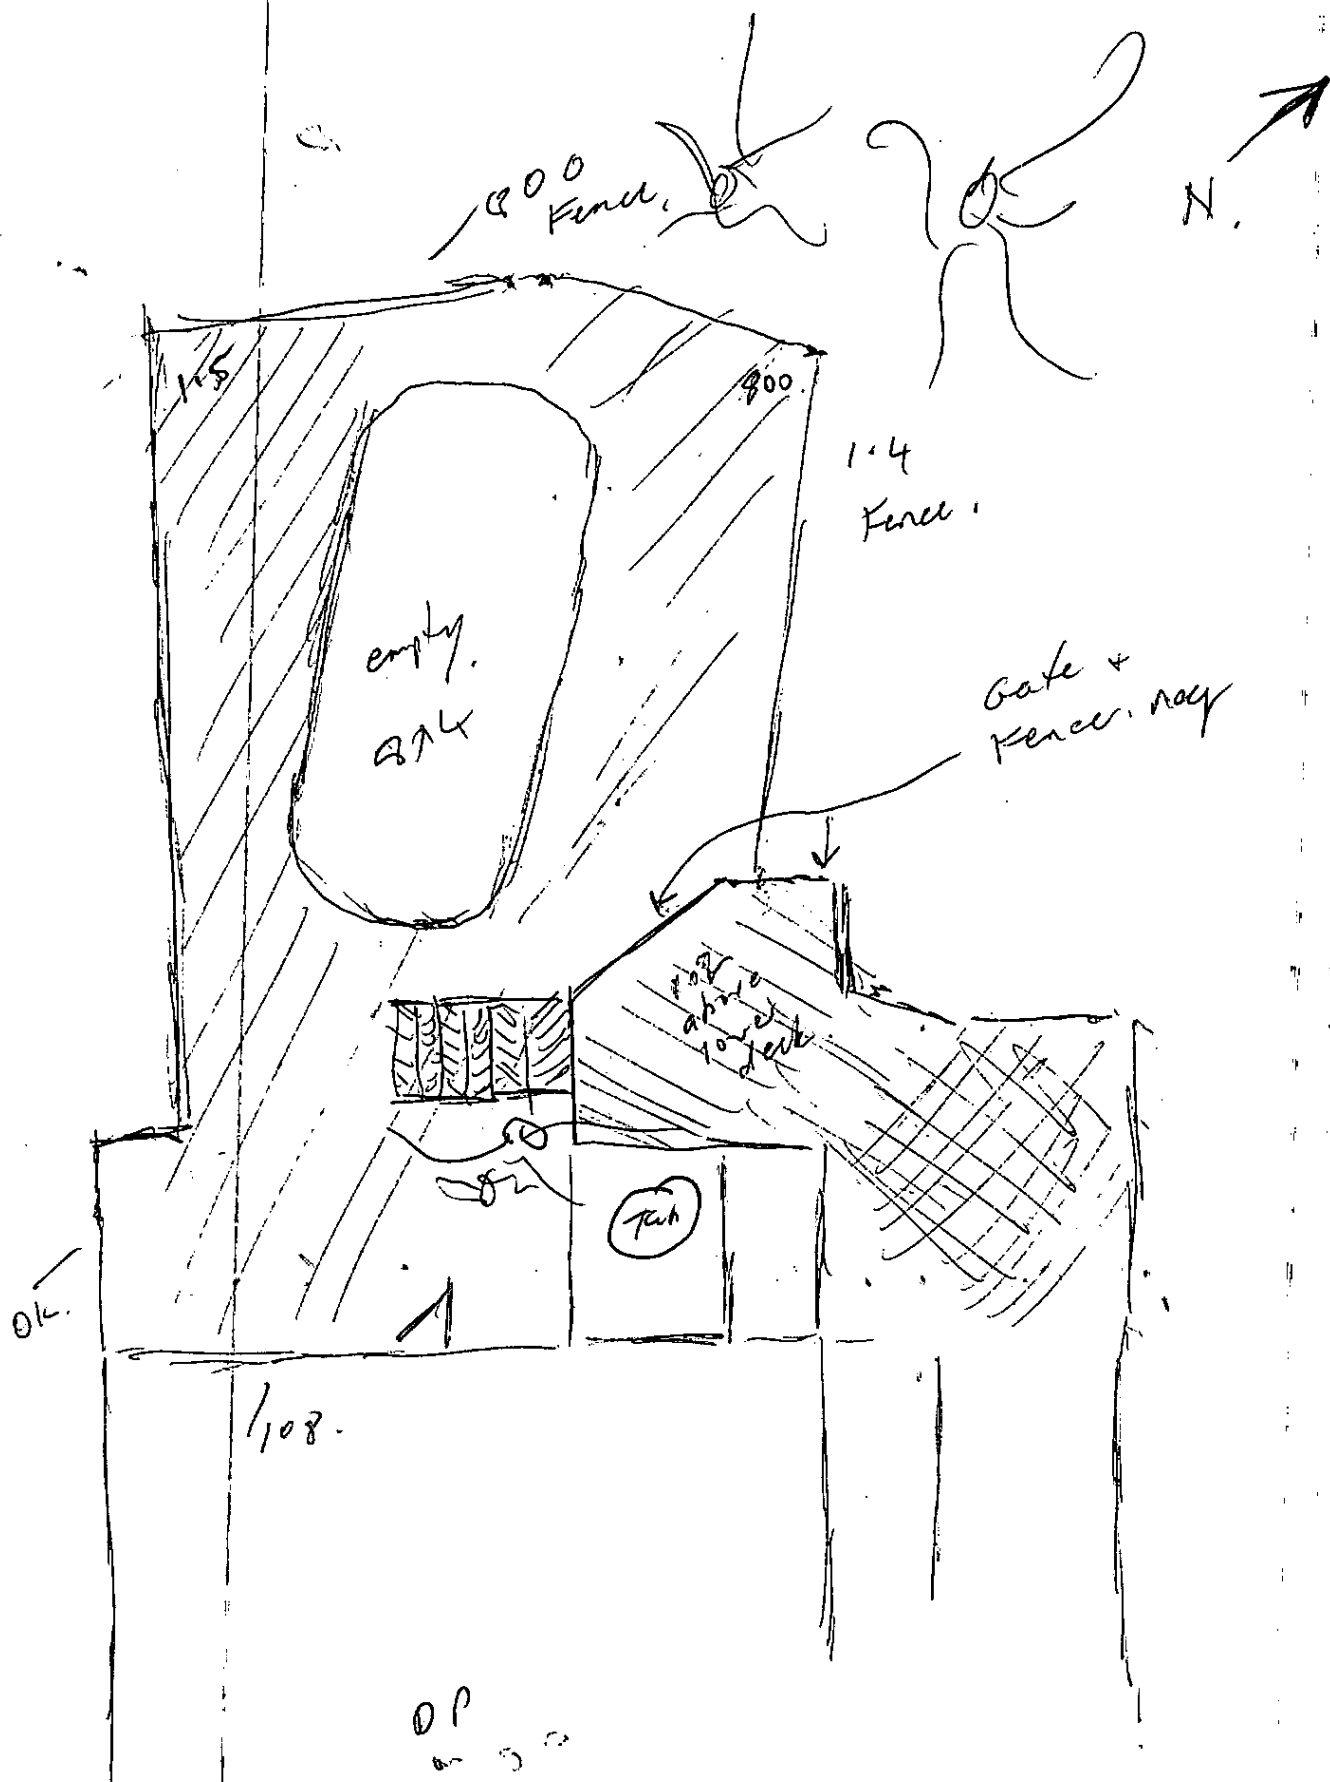 800
Fence.
N.
1.5
800.
1.4
Fence.
empty.
8x4
Gate +
Fence.
above
lower
deck
OK.
108.
DP